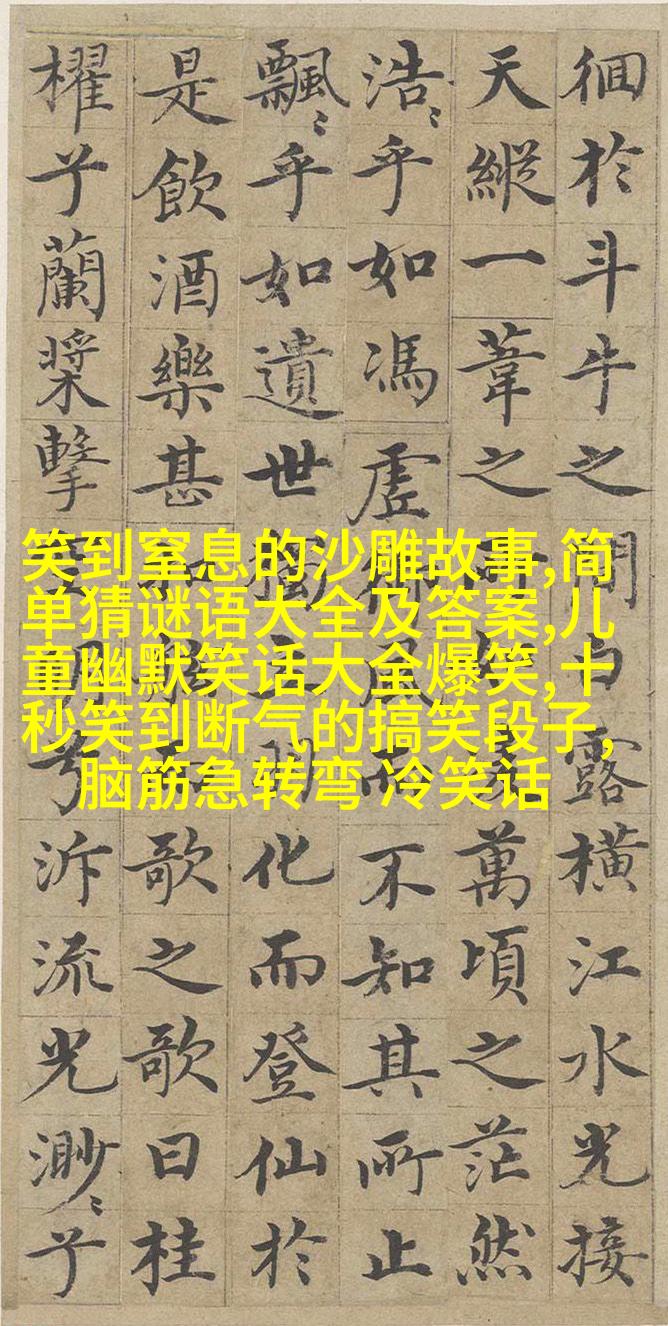 徊於斗牛之間白露橫江水光接
天縱一葦之所萬頃之茫然
浩〻乎如馮虛風而不知其所止
飄〻乎如遺世獨立羽化而登仙於
是飲酒樂甚歌之歌曰桂
櫂兮蘭槳擊兮泝流光渺〻兮
笑到窒息的沙雕故事,简
单猜谜语大全及答案,儿
童幽默笑话大全爆笑,十
秒笑到断气的搞笑段子,
脑筋急转弯 冷笑话